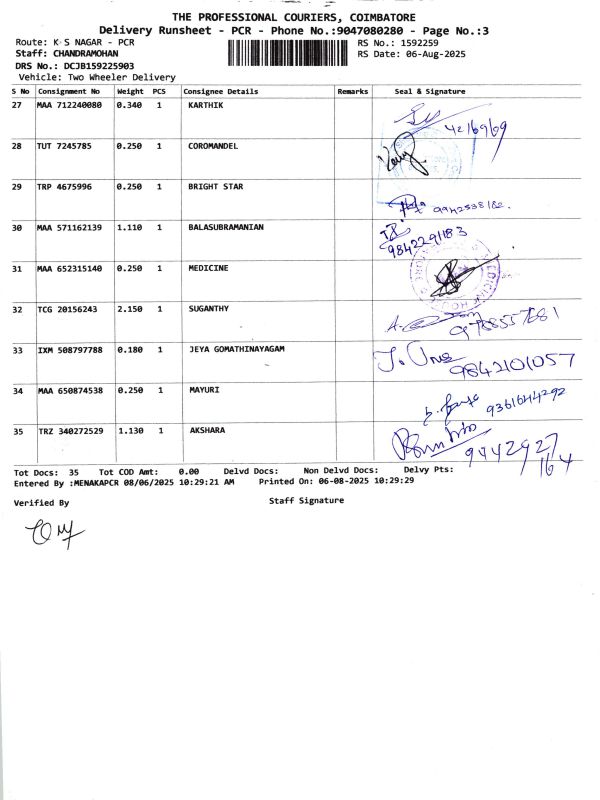 THE PROFESSIONAL COURIERS, COIMBATORE
Delivery Runsheet - PCR - Phone No.:9047080280 - Page No.:3
Route: K S NAGAR - PCR
RS No.: 1592259
Staff: CHANDRAMOHAN
RS Date: 06-Aug-2025
DRS No.: DCJB159225903
Vehicle: Two Wheeler Delivery
S No Consignment No Weight PCS Consignee Details Remarks Seal & Signature
27 MAA 712240080 0.340 1 KARTHIK
28 TUT 7245785 0.250 1 COROMANDEL
29 TRP 4675996 0.250 1 BRIGHT STAR
30 MAA 571162139 1.110 1 BALASUBRAMANIAN
9842291183
31 MAA 652315140 0.250 1 MEDICINE
32 TCG 20156243 2.150 1 SUGANTHY
33 IXM 508797788 0.180 1 JEYA GOMATHINAYAGAM
9842101057
34 MAA 650874538 0.250 1 MAYURI
9361644292
35 TRZ 340272529 1.130 1 AKSHARA
9442927
164
Tot Docs: 35 Tot COD Amt: 0.00 Delvd Docs: Non Delvd Docs: Delvy Pts:
Entered By :MENAKAPCR 08/06/2025 10:29:21 AM Printed On: 06-08-2025 10:29:29
Verified By Staff Signature